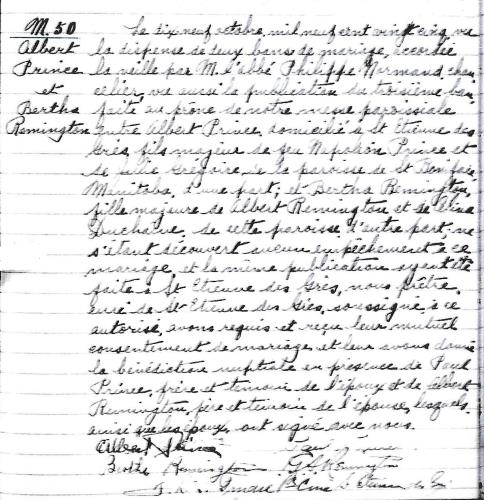 M. 50
Albert
Prince
et
Bertha
Remington
Le dix neuf octobre, mil neuf cent vingt cinq, vu
la dispense de deux bans de mariage, accordée
la veille par M. l'abbé Philippe Normand, chan
celier, vu aussi la publication du troisième ban,
faite au prône de notre messe paroissiale
entre Albert Prince, domicilié à St Etienne des
Grès, fils majeur de feu Napoléon Prince et
de Grégoire de la paroisse de St Boniface
Manitoba, d'une part; et Bertha Remington,
fille majeure de Albert Remington et de
Duchaine, de cette paroisse d'autre part; ne
s'étant découvert aucun empêchement à ce
mariage, et la même publication ayant été
faite à St Etienne des Grès, nous prêtre,
curé de St Etienne des Grès, soussigné, à ce
autorisé, avons requis et reçu leur mutuel
consentement de mariage et leur avons donné
la bénédiction nuptiale en présence de Paul
Prince, frère et temoin de l'époux et de Albert
Remington, père et temoin de l'épouse, lesquels
ainsi que les époux, ont signé avec nous.
Albert Prince
Berthe Remington
Ptre Curé St Etienne